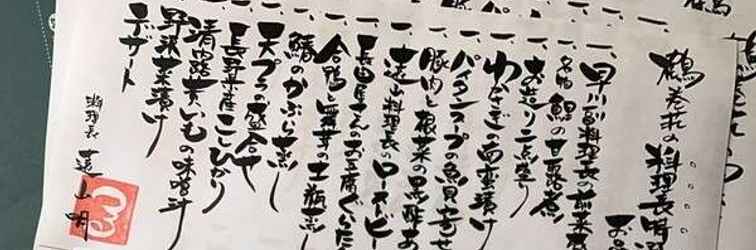 鶴巻荘の料理長
お
一、早川副料理長の前菜
一、名物 鯉の甘露煮
一、お造り二点盛り
一、わかさぎの南蛮漬け
一、パイタンスープの魚貝寄せ
一、豚肉と根菜の黒酢あ
一、遠山料理長のローストビー
一、長田屋さんのお豆腐
一、合鴨と舞茸の土瓶蒸し
一、鰆のかぶら蒸し
一、天プラ盛合せ
一、長野県産こしひかり
一、清内路黄いもの味噌汁
一、野沢菜漬け
一、デザート
料理長 遠山明
つる